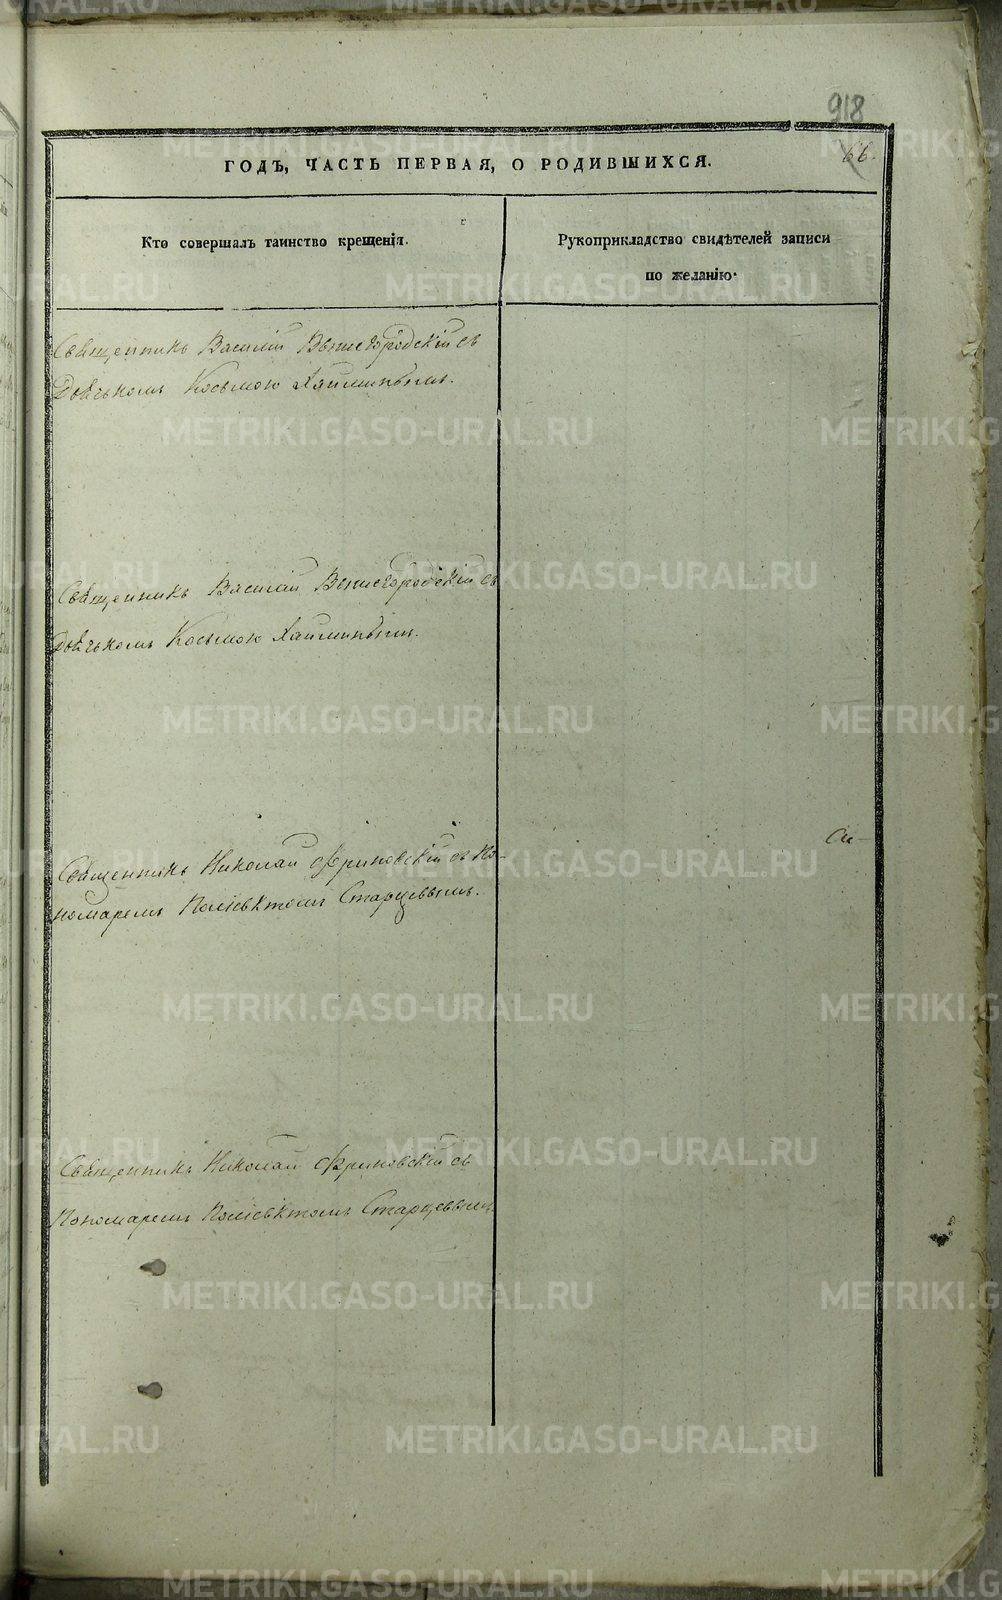 918
66.
ГОДЪ, ЧАСТЬ ПЕРВАЯ, О РОДИВШИХСЯ.
Кто совершалъ таинство крещенія.
Рукоприкладство свидѣтелей записи
по желанію.
Священникъ Василій Вышегородскій съ
Дьячкомъ Косьмою Хайминымъ.
Священникъ Василій Вышегородскій съ
Дьячкомъ Косьмою Хайминымъ.
Священникъ Николай Фриновскій съ По-
номаремъ Поліевктомъ Старцевымъ.
Священникъ Николай Фриновскій съ
Пономаремъ Поліевктомъ Старцевымъ.
METRIKI.GASO-URAL.RU